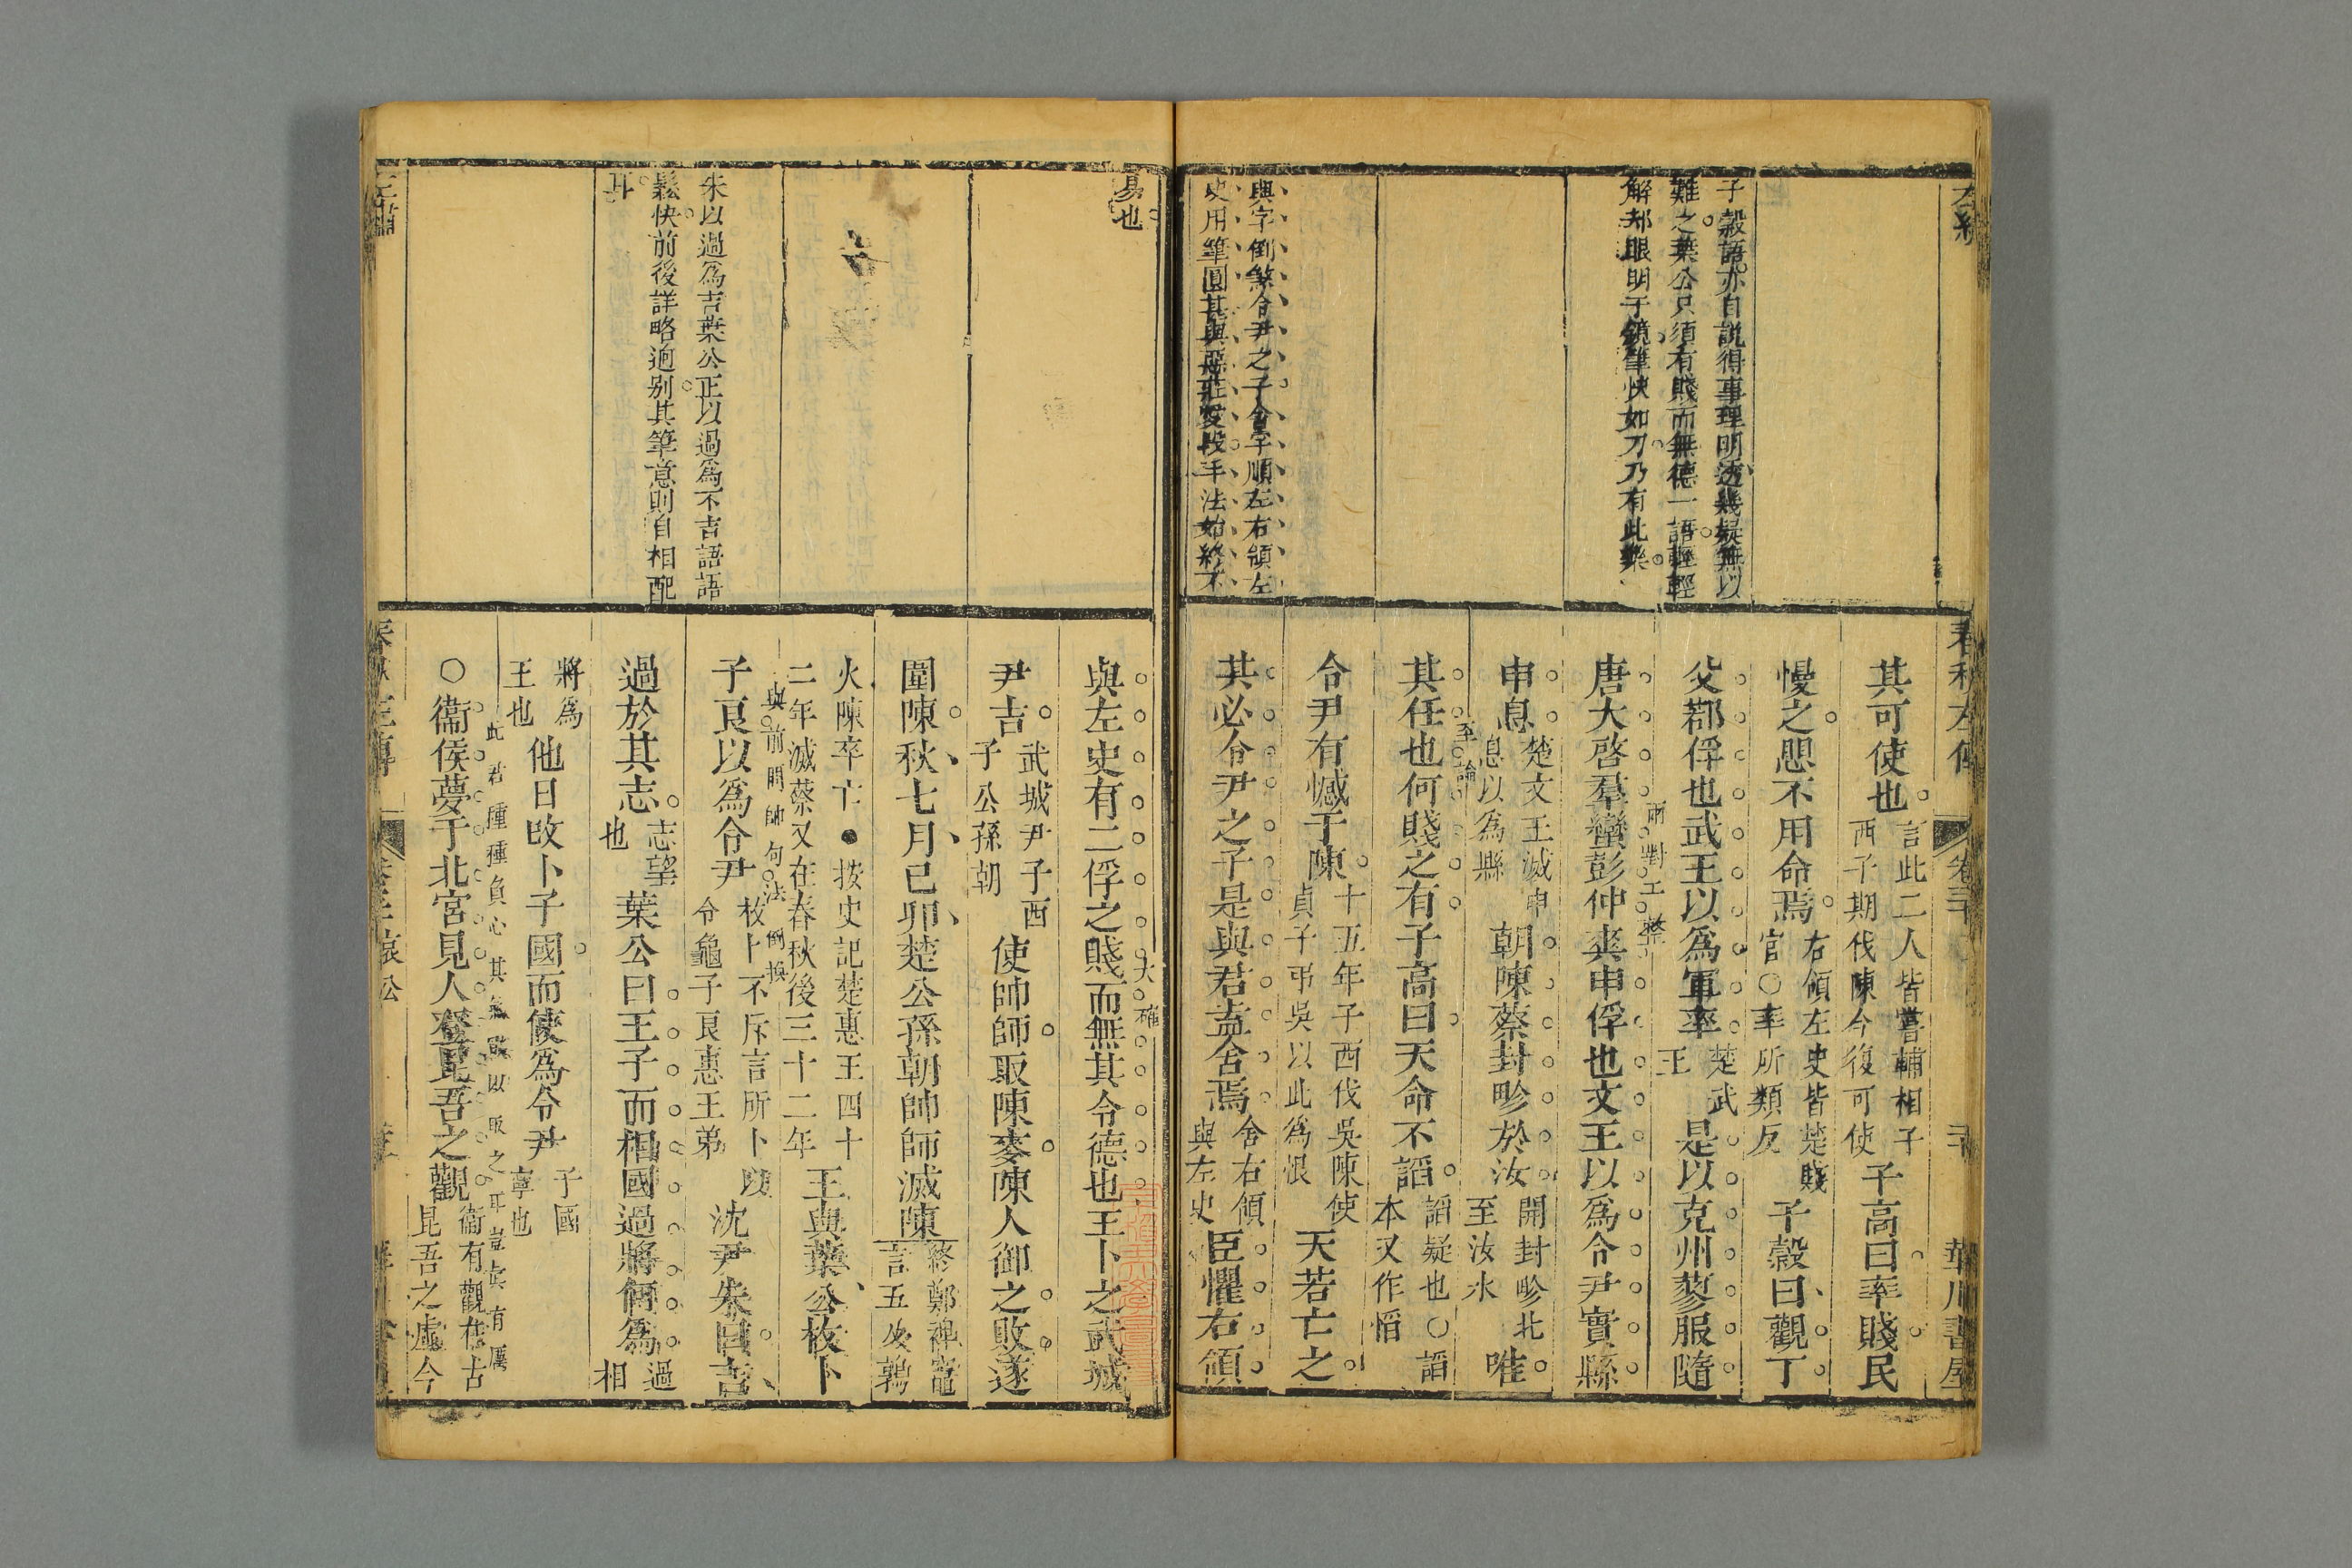 子穀語亦自說得事理明透幾疑無以
難之葉公只須有賤而無德一語輕輕
解却眼明于鏡筆快如刀乃有此樂
與字倒煞令尹之子舍字順左右領左
史用筆圓其與
手法始終不
春秋左傳
卷三十
華川書屋
其可使也言此二人皆嘗輔相子
西子期伐陳今復可使子高曰率賤民
慢之懼不用命焉右領左史皆楚賤
官○率所類反子穀曰觀丁
父鄀俘也武王以爲軍率楚武
王是以克州蓼服隨
唐大啓羣蠻彭仲爽申俘也文王以爲令尹實縣
兩對工整
申息楚文王滅申
息以爲縣朝陳蔡封畛於汝開封畛北
至汝水唯
其任也何賤之有子高曰天命不謟謟疑也○謟
本又作慆
至論
令尹有憾于陳十五年子西伐吳陳使
貞子弔吳以此爲恨天若亡之
其必令尹之子是與君盍舍焉舍右領
與左史臣懼右領
易也
朱以過爲吉葉公正以過爲不吉語語
鬆快前後詳略逈别其筆意則自相配
耳
與左史有二俘之賤而無其令德也王卜之武城
大確
尹吉武城尹子西
子公孫朝使帥師取陳麥陳人御之敗遂
圍陳秋七月己卯楚公孫朝帥師滅陳終鄭裨竈
言五及鶉
火陳卒亡●按史記楚惠王四十
二年滅蔡又在春秋後三十二年王與葉公枚卜
與前開帥句法倒換
子良以爲令尹枚卜不斥言所卜以
令龜子良惠王弟沈尹朱曰吉
過於其志志望
也葉公曰王子而相國過將何爲過
相
將爲
王也他日改卜子國而使爲令尹子國
寧也
此君種種負心其無以取之耳豈眞有厲
○衞侯夢于北宮見人登昆吾之觀衞有觀在古
昆吾之虛今